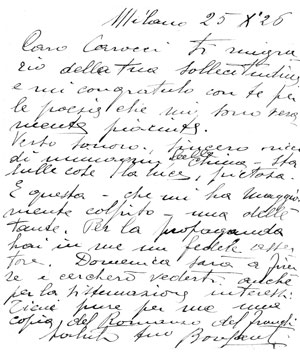 Milano 25 X° 26
Caro Carocci Ti ringra
zio della tua sollecitudine
e mi congratulo con te per
le poesie che mi sono vera
mente piaciute.
Verso sonoro, sincero
di
sulle cose la luce, pietosa.
E questa - che mi ha maggior
mente colpito - una delle
tante. Per la propaganda
hai in me un fedele asser
tore. Domenica sarò a Firen
ze e cercherò vederti, anche
per la
pure per me una
copia del Romanzo del
tuo Bonsanti